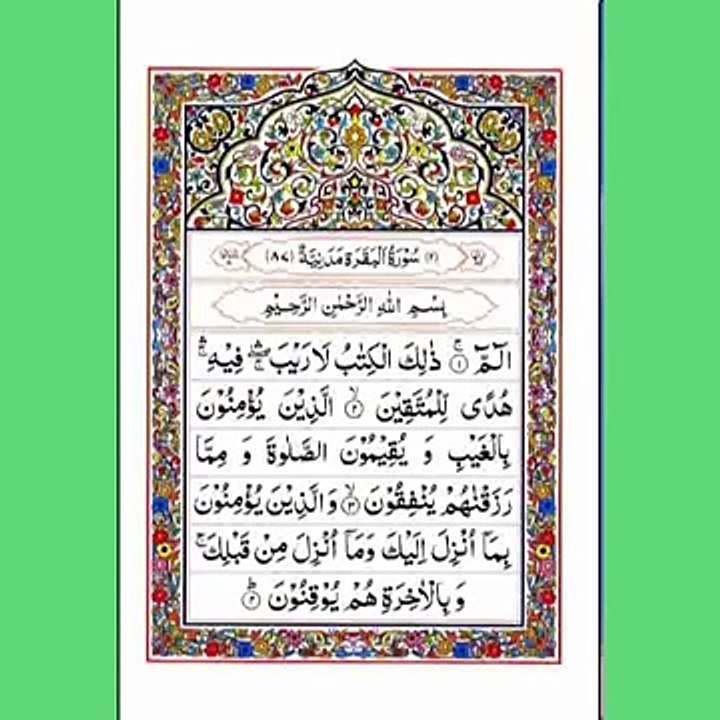 (٢) سُوْرَةُ الْبَقَرَةِ مَدَنِيَّةٌ (٨٧)
بِسْمِ اللّٰهِ الرَّحْمٰنِ الرَّحِيْمِ
الٓمّٓ ۚ ﴿١﴾ ذٰلِكَ الْكِتٰبُ لَا رَيْبَ ۛۖۚ فِيْهِ ۛۚ
هُدًى لِّلْمُتَّقِيْنَ ۙ﴿٢﴾ الَّذِيْنَ يُؤْمِنُوْنَ
بِالْغَيْبِ وَ يُقِيْمُوْنَ الصَّلٰوةَ وَ مِمَّا
رَزَقْنٰهُمْ يُنْفِقُوْنَ ۙ﴿٣﴾ وَالَّذِيْنَ يُؤْمِنُوْنَ
بِمَاۤ اُنْزِلَ اِلَيْكَ وَمَاۤ اُنْزِلَ مِنْ قَبْلِكَ ۚ
وَ بِالْاٰخِرَةِ هُمْ يُوْقِنُوْنَ ؕ﴿٤﴾